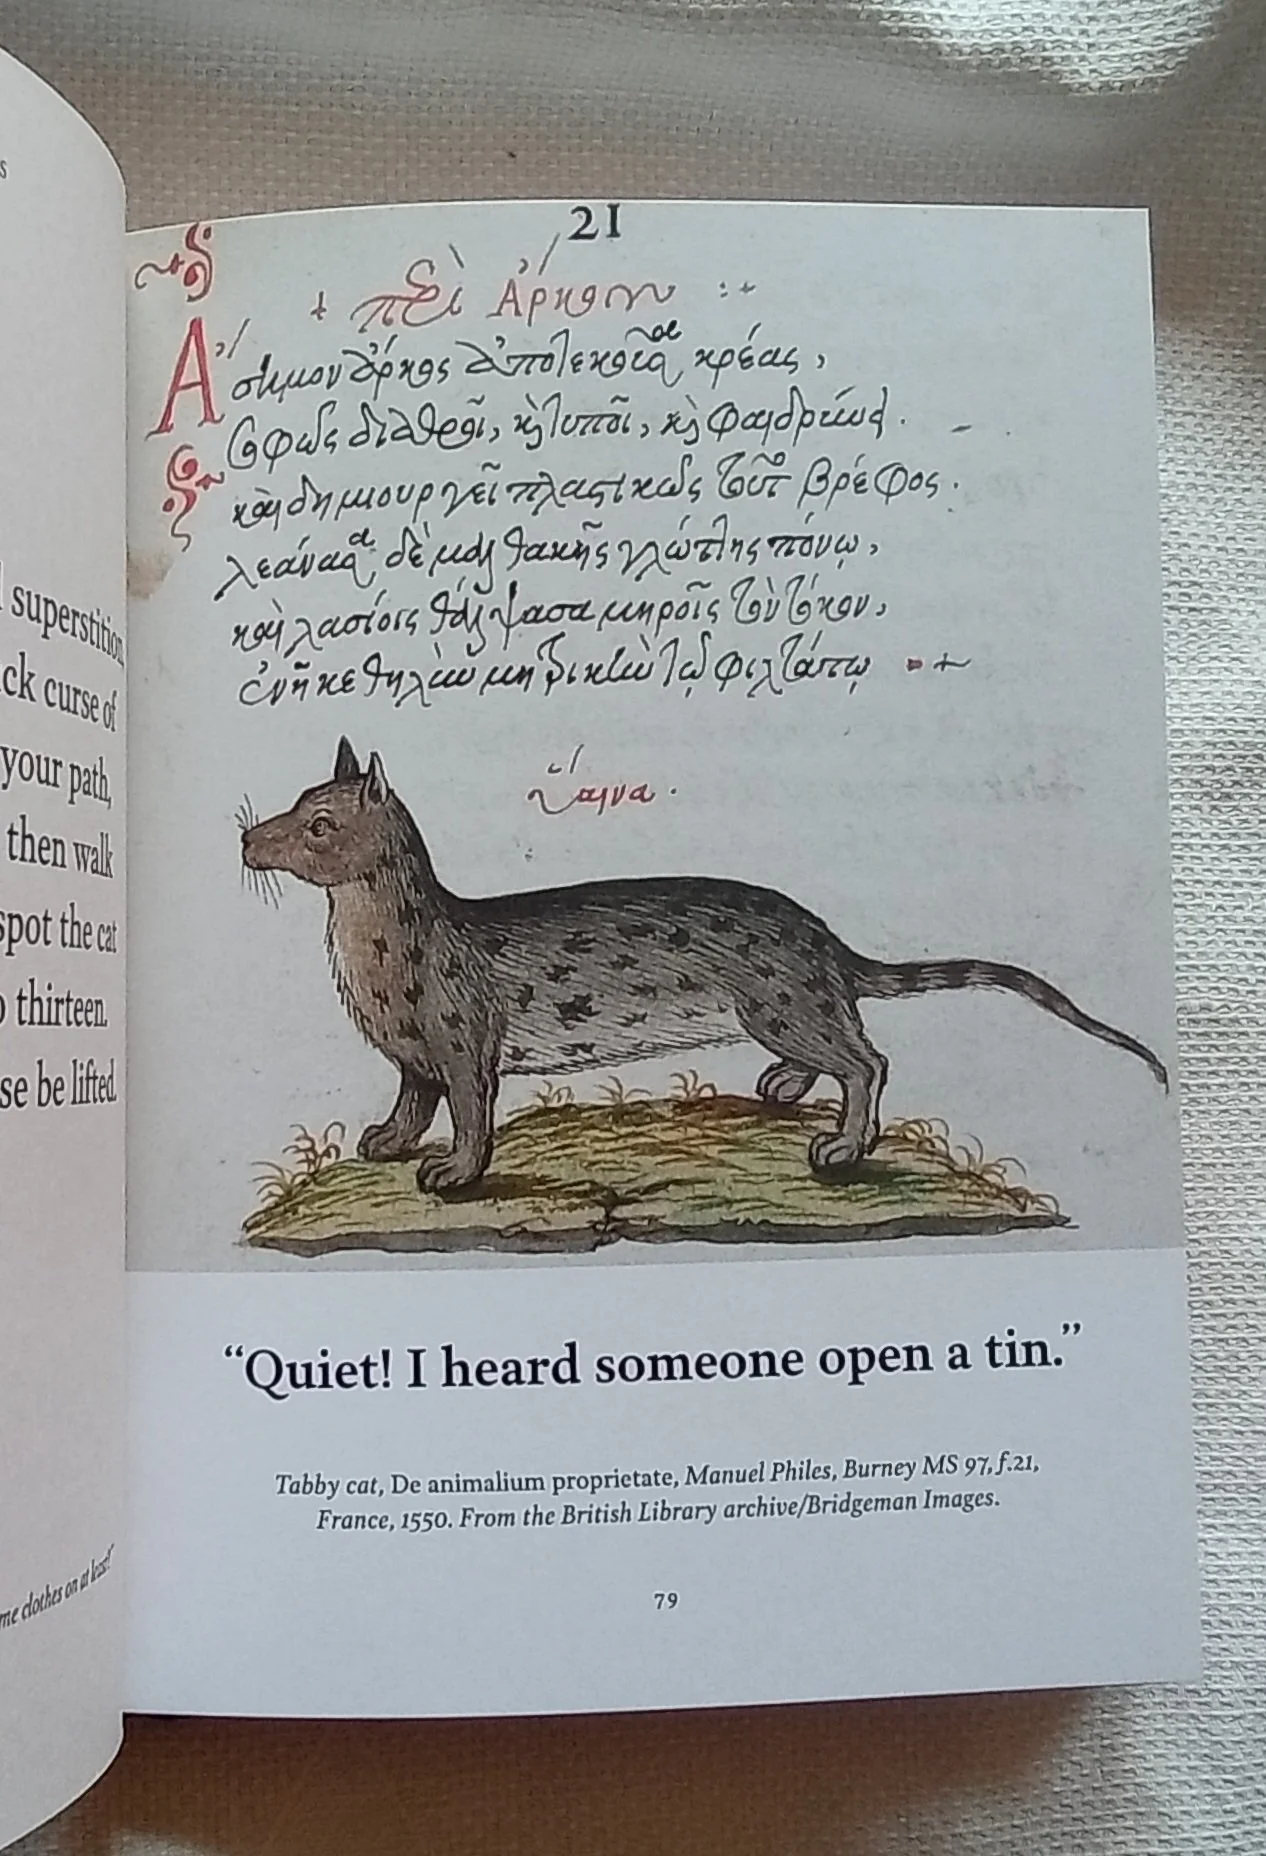 s
superstition
ck curse of
your path,
then walk
spot the cat
thirteen.
se be lifted.
me clothes on at least!'
21
+ περὶ Ἄρκτου :+
Ἄσημον ἄρκτος ἀποτεκοῦσα κρέας,
σοφῶς διαρθροῖ, καὶ τυποῖ, καὶ φαιδρύνει.
καὶ δημιουργεῖ πλαστικῶς τοῦτο βρέφος.
λεάνασα δὲ μαλθακῆς γλώττης πόνῳ,
καὶ λασίοις θάλψασα μηροῖς τὸν τόκον,
ἐνῆκε θηλὴν μητρικὴν τῷ φιλτάτῳ
ὕαινα.
“Quiet! I heard someone open a tin.”
Tabby cat, De animalium proprietate, Manuel Philes, Burney MS 97, f.21,
France, 1550. From the British Library archive/Bridgeman Images.
79